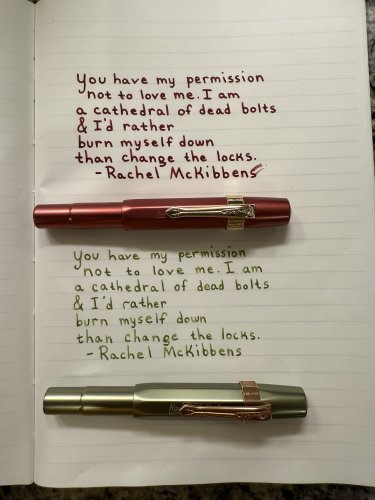 You have my permission
not to love me. I am
a cathedral of dead bolts
& I'd rather
burn myself down
than change the locks.
- Rachel McKibbens
You have my permission
not to love me. I am
a cathedral of dead bolts
& I'd rather
burn myself down
than change the locks.
- Rachel McKibbens